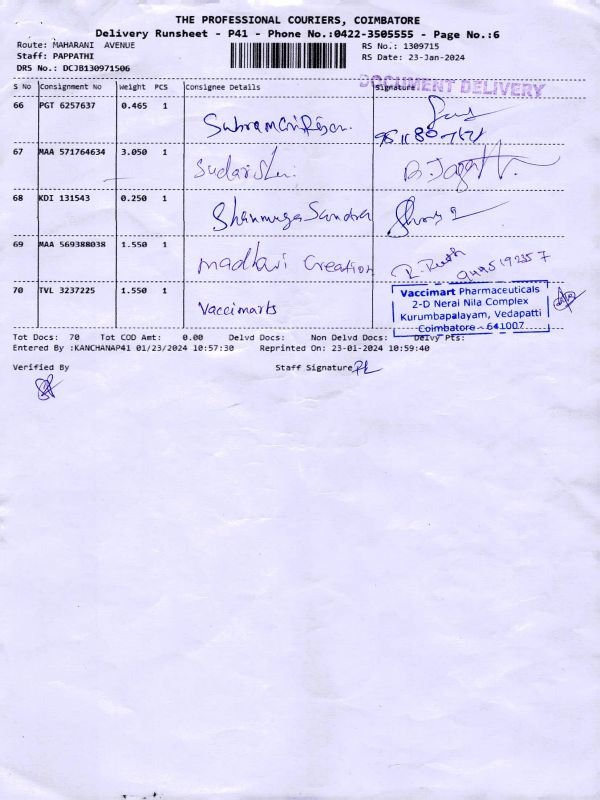 THE PROFESSIONAL COURIERS, COIMBATORE
Delivery Runsheet - P41 - Phone No.:0422-3505555 - Page No.:6
Route: MAHARANI AVENUE RS No.: 1309715
Staff: PAPPATHI RS Date: 23-Jan-2024
DRS No.: DCJB130971506
DOCUMENT DELIVERY
S No Consignment No Weight PCS Consignee Details Signature
66 PGT 6257637 0.465 1
67 MAA 571764634 3.050 1
68 KDI 131543 0.250 1 Shanmuga Sundra
69 MAA 569388038 1.550 1 madhavi Creation
70 TVL 3237225 1.550 1 Vaccimarts
Vaccimart Pharmaceuticals
2-D Nerai Nila Complex
Kurumbapalayam, Vedapatti
Coimbatore - 641007
Tot Docs: 70 Tot COD Amt: 0.00 Delvd Docs: Non Delvd Docs: Delvy Pts:
Entered By :KANCHANAP41 01/23/2024 10:57:30 Reprinted On: 23-01-2024 10:59:40
Verified By Staff Signature